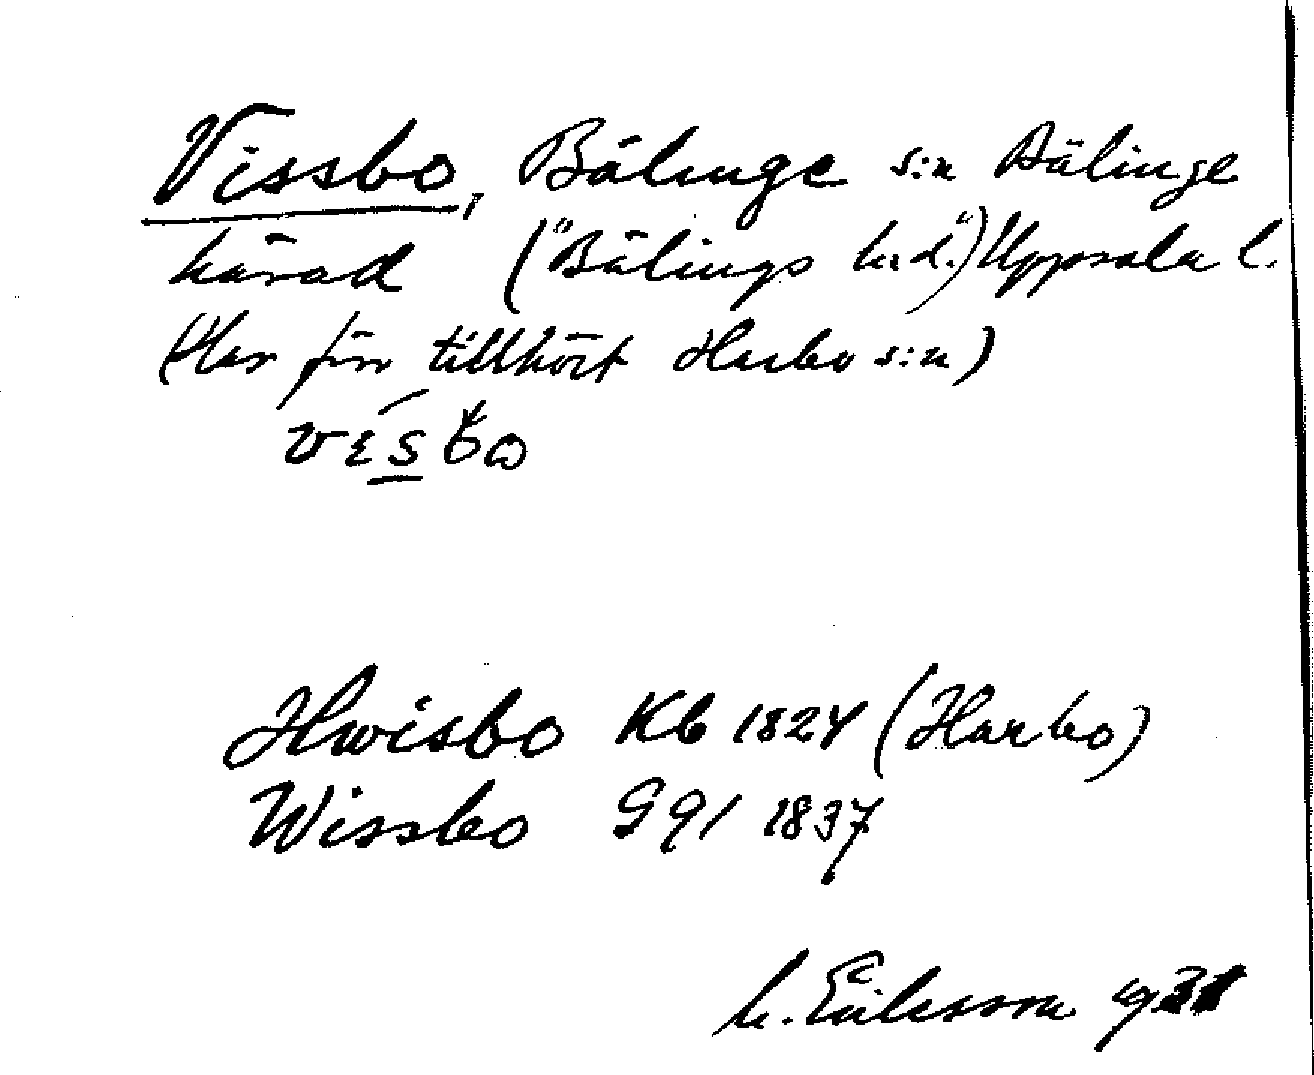 Vissbo, Bälinge s:n Bälinge
härad ("Bälings h.d.") Uppsala l.
(Har förr tillhört Harbo s:n)
Hwisbo Kb 1824 (Harbo)
Wissbo G 91 1837
M. Eriksson